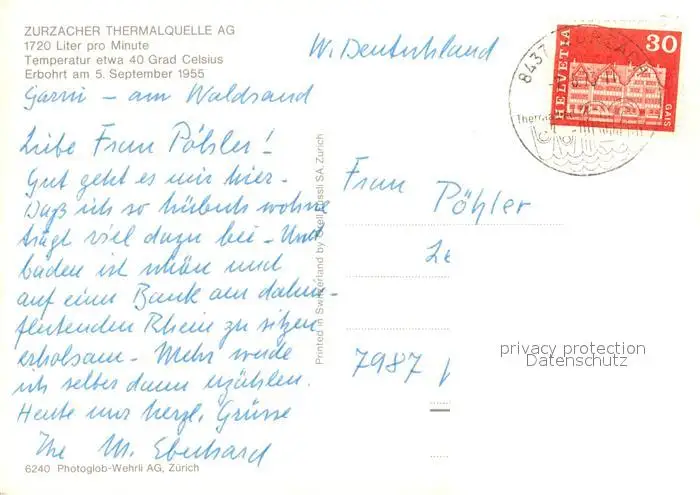 ZURZACHER THERMALQUELLE AG
1720 Liter pro Minute
Temperatur etwa 40 Grad Celsius
Erbohrt am 5. September 1955
Garni – am Waldrand
Liebe Frau Pöhler!
Gut geht es mir hier.
Daß ich so hübsch wohne
trägt viel dazu bei – Und
baden ist schön und
auf einer Bank am dahin-
fließenden Rhein zu sitzen
erholsam – Mehr werde
ich selber dann erzählen.
Heute nur herzl. Grüsse
Ihre M. Eberhard
6240 Photoglob-Wehrli AG, Zürich
Printed in Switzerland by Orell Füssli SA, Zürich
W. Deutschland
HELVETIA
30
GAIS
8437 ZURZACH
Frau Pöhler
7987
privacy protection
Datenschutz